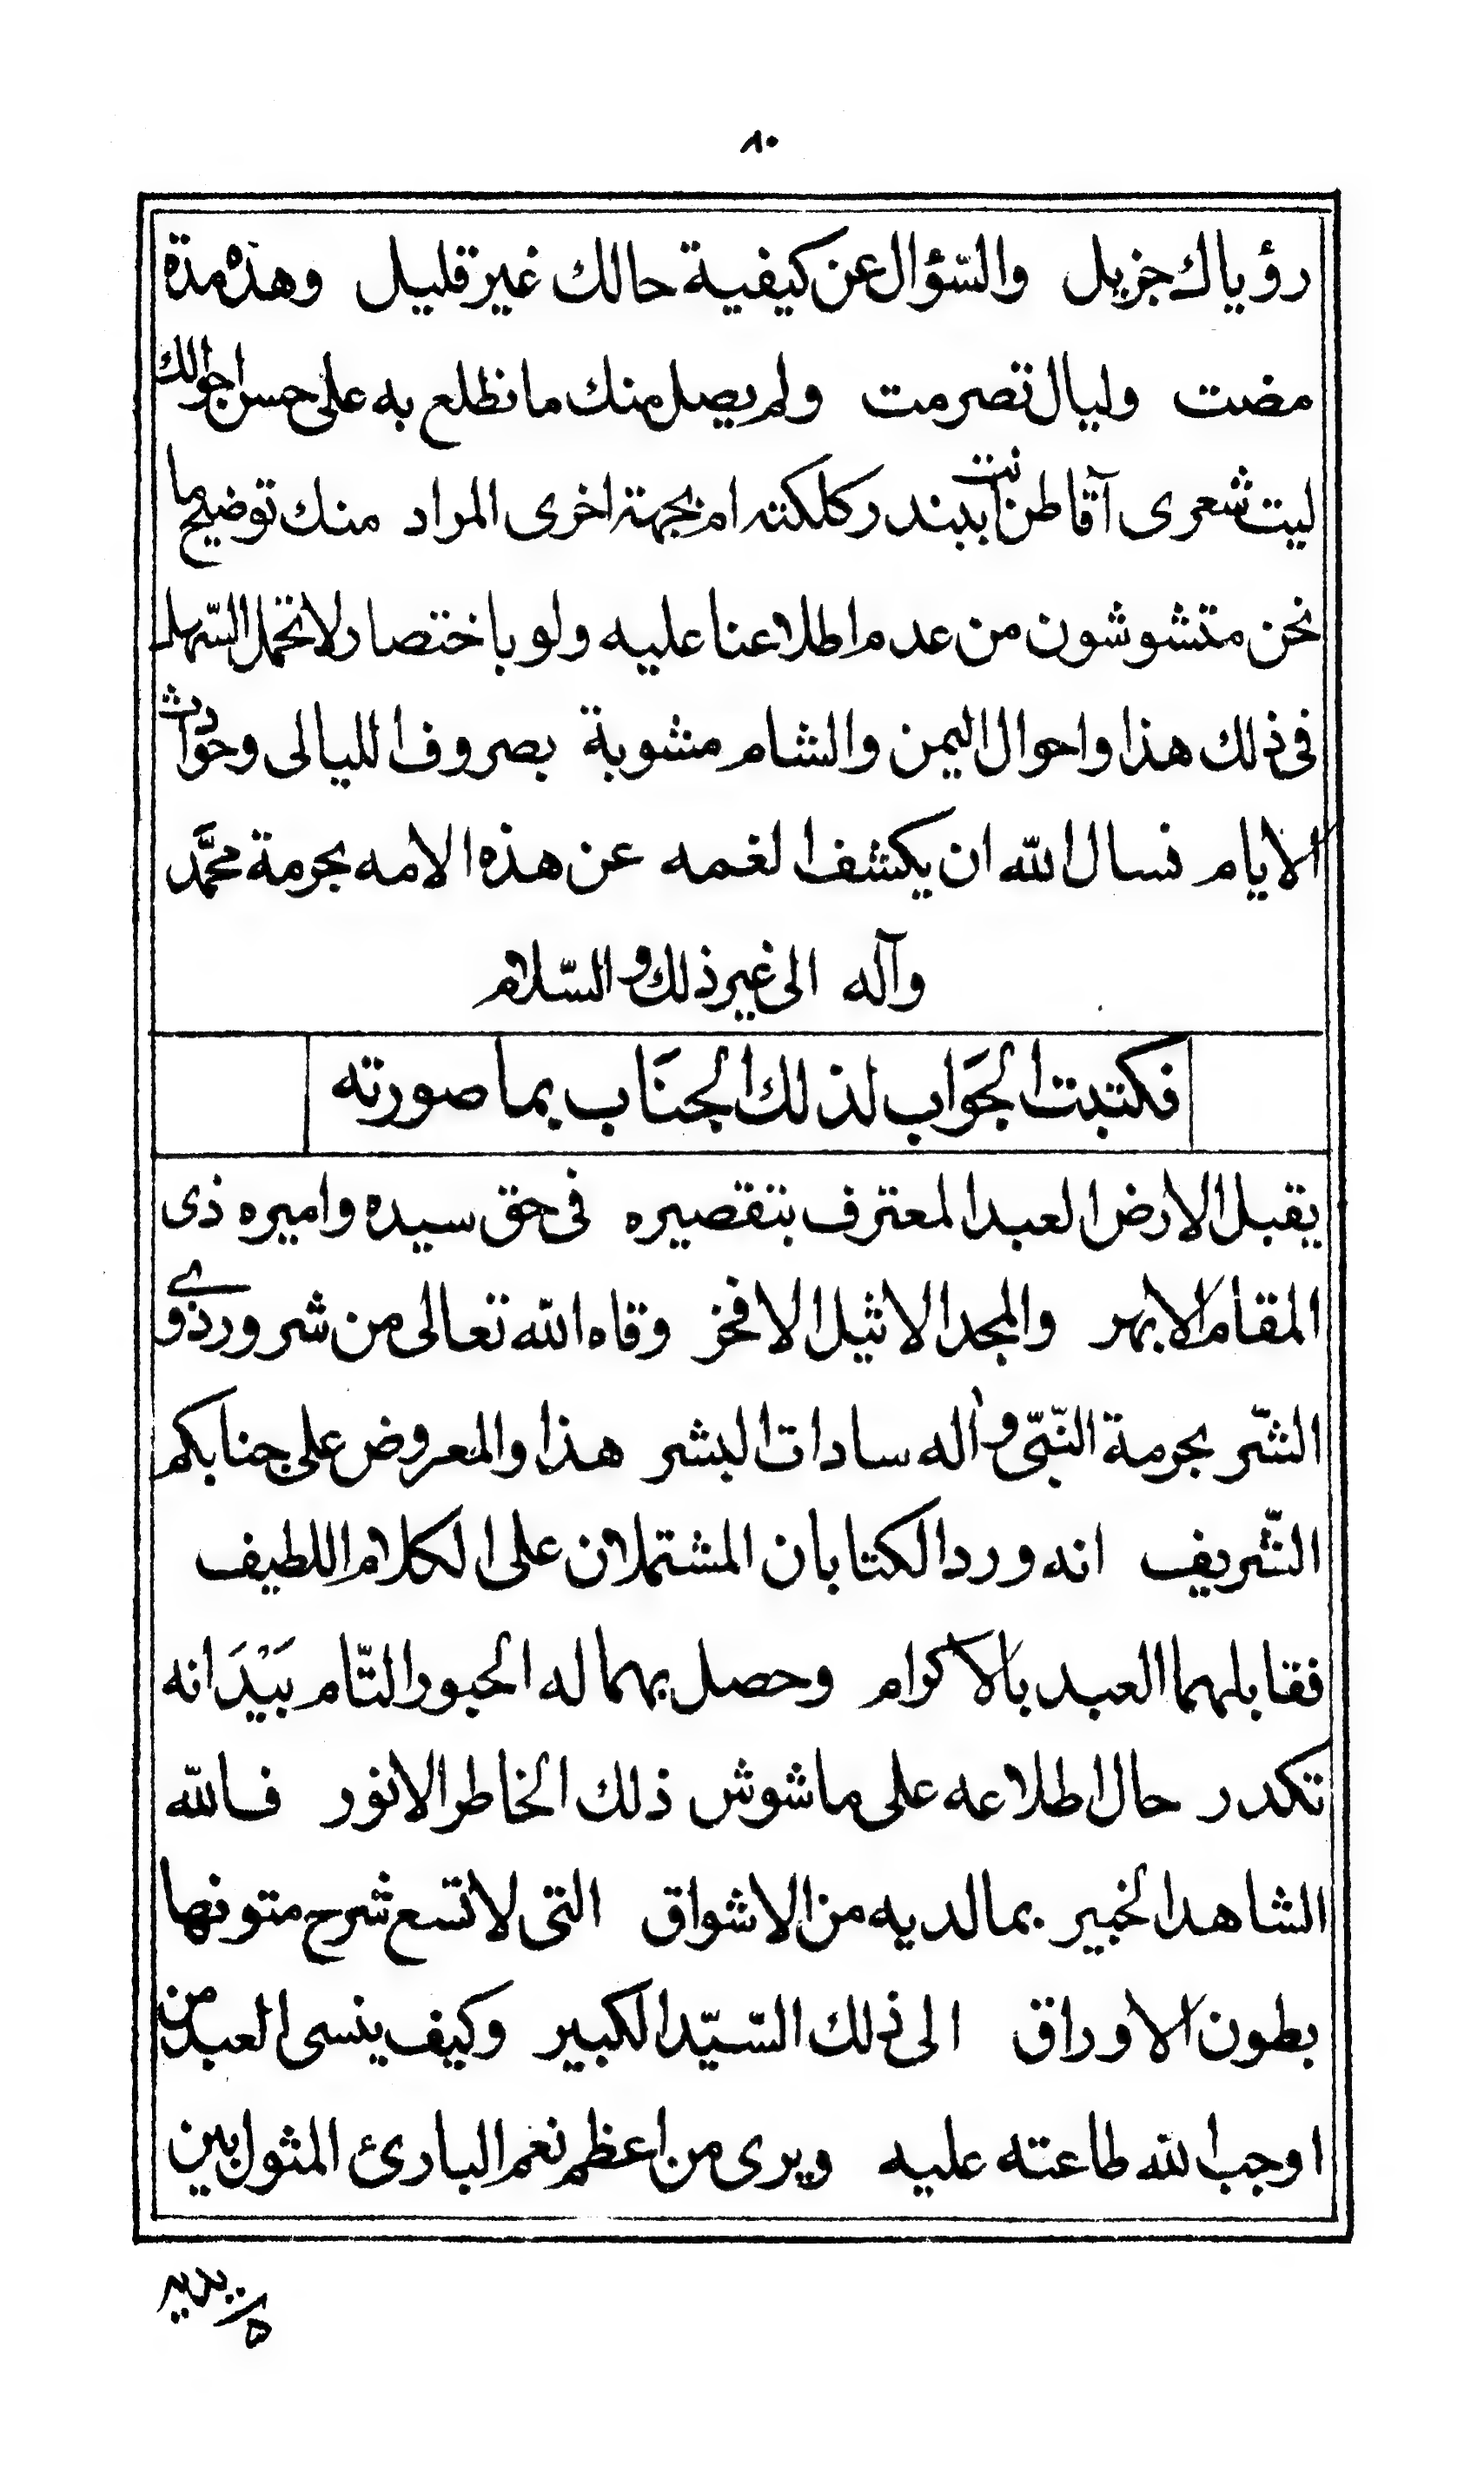 ٨٠
رؤياك جزيل والسّؤال عن كيفية حالك غير قليل وهذه مدة
مضت وليال تصرمت ولم يصل منك ما نطلع به على حسن احوالك
ليت شعرى آقاطن انت ببندر كلكته ام بجهة اخرى المراد منك توضيح ما
نحن متشوشون من عدم اطلاعنا عليه ولو باختصار لا تحمل السّهل
فى ذلك هذا واحوال اليمن والشام مشوبة بصروف الليالى وحوادث
الايام نسال الله ان يكشف الغمه عن هذه الامه بحرمة محمَّد
وآله الى غير ذلك والسّلام
فكتبت الجَوَاب لذلك الجنَاب بما صورته
يقبل الارض العبد المعترف بتقصيره فى حق سيده واميره ذى
المقام الابهر والمجد الاثيل الافخر وقاه الله تعالى من شرور ذوى
الشّر بحرمة النّبىّ وآله سادات البشر هذا والمعروض على جنابكم
الشّريف انه ورد الكتابان المشتملان على الكلام اللطيف
فقابلهما العبد بالاكرام وحصل بهما له الحبور التّام بَيْدَ انه
تكدر حال اطلاعه على ما شوش ذلك الخاطر الانور فالله
الشاهد الخبير بما لديه من الاشواق التى لا تسع شرح متونها
بطون الاوراق الى ذلك السّيّد الكبير وكيف ينسى العبد من
اوجب الله طاعته عليه ويرى من اعظم نعم البارئ المثول بين
يديه